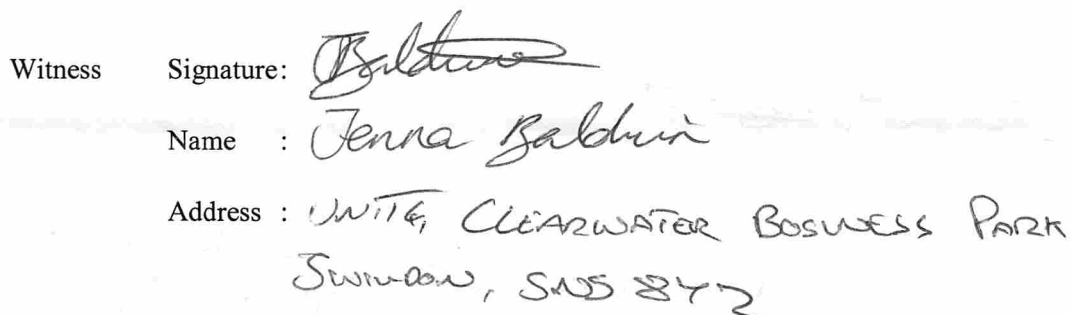 Witness Signature: JBaldwin
Name : Jenna Baldwin
Address : UNIT 6, CLEARWATER BUSINESS PARK
SWINDON, SN5 8YZ